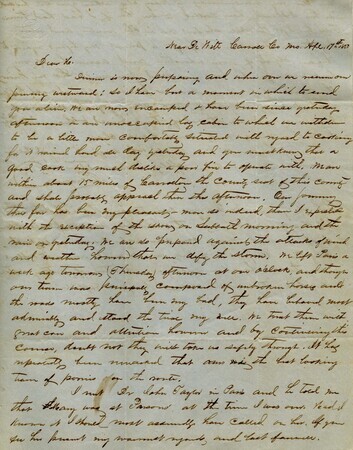 Near De Witt Carroll Co Mo. Apl. 17th
Dear
is now preparing and when over we resume our
journey westward: So I have but a moment in which to send
you a line. We are now encamped & have been since yesterday
afternoon in an unoccupied log cabin to which we
to be a little more comfortably situated with regard to cooking
It rained hard all day yesterday and you must know that a
good cook very much dislikes a poor fire to operate with. We are
within about 15 miles of Carrollton the County seat of this county
and shall probably approach there this afternoon. Our journey
thus far has been very pleasant, more so indeed, than I
with the exception of the snow on Sabbath morning and the
rain of yesterday. We are so prepared against the attacks of wind
and weather however that we defy the storm. We left Paris a
week ago tomorrow (Thursday) afternoon at one o'clock, and though
our team was composed of unbroken horses and
the roads mostly have been very bad, they have behaved most
admirably and stand the trip very nice. We treat them with
great care and attention however and by continuing this
course, doubt not they will take us safely through. It has
repeatedly been remarked that ours was the best looking
team of ponies on the route.
I met Dr John Taylor in Paris and he told me
that Mary was at Parsons at the time I was over. Had I
known it I should most assuredly have called on her. If you
see her present my warmest regards, and last farewell.